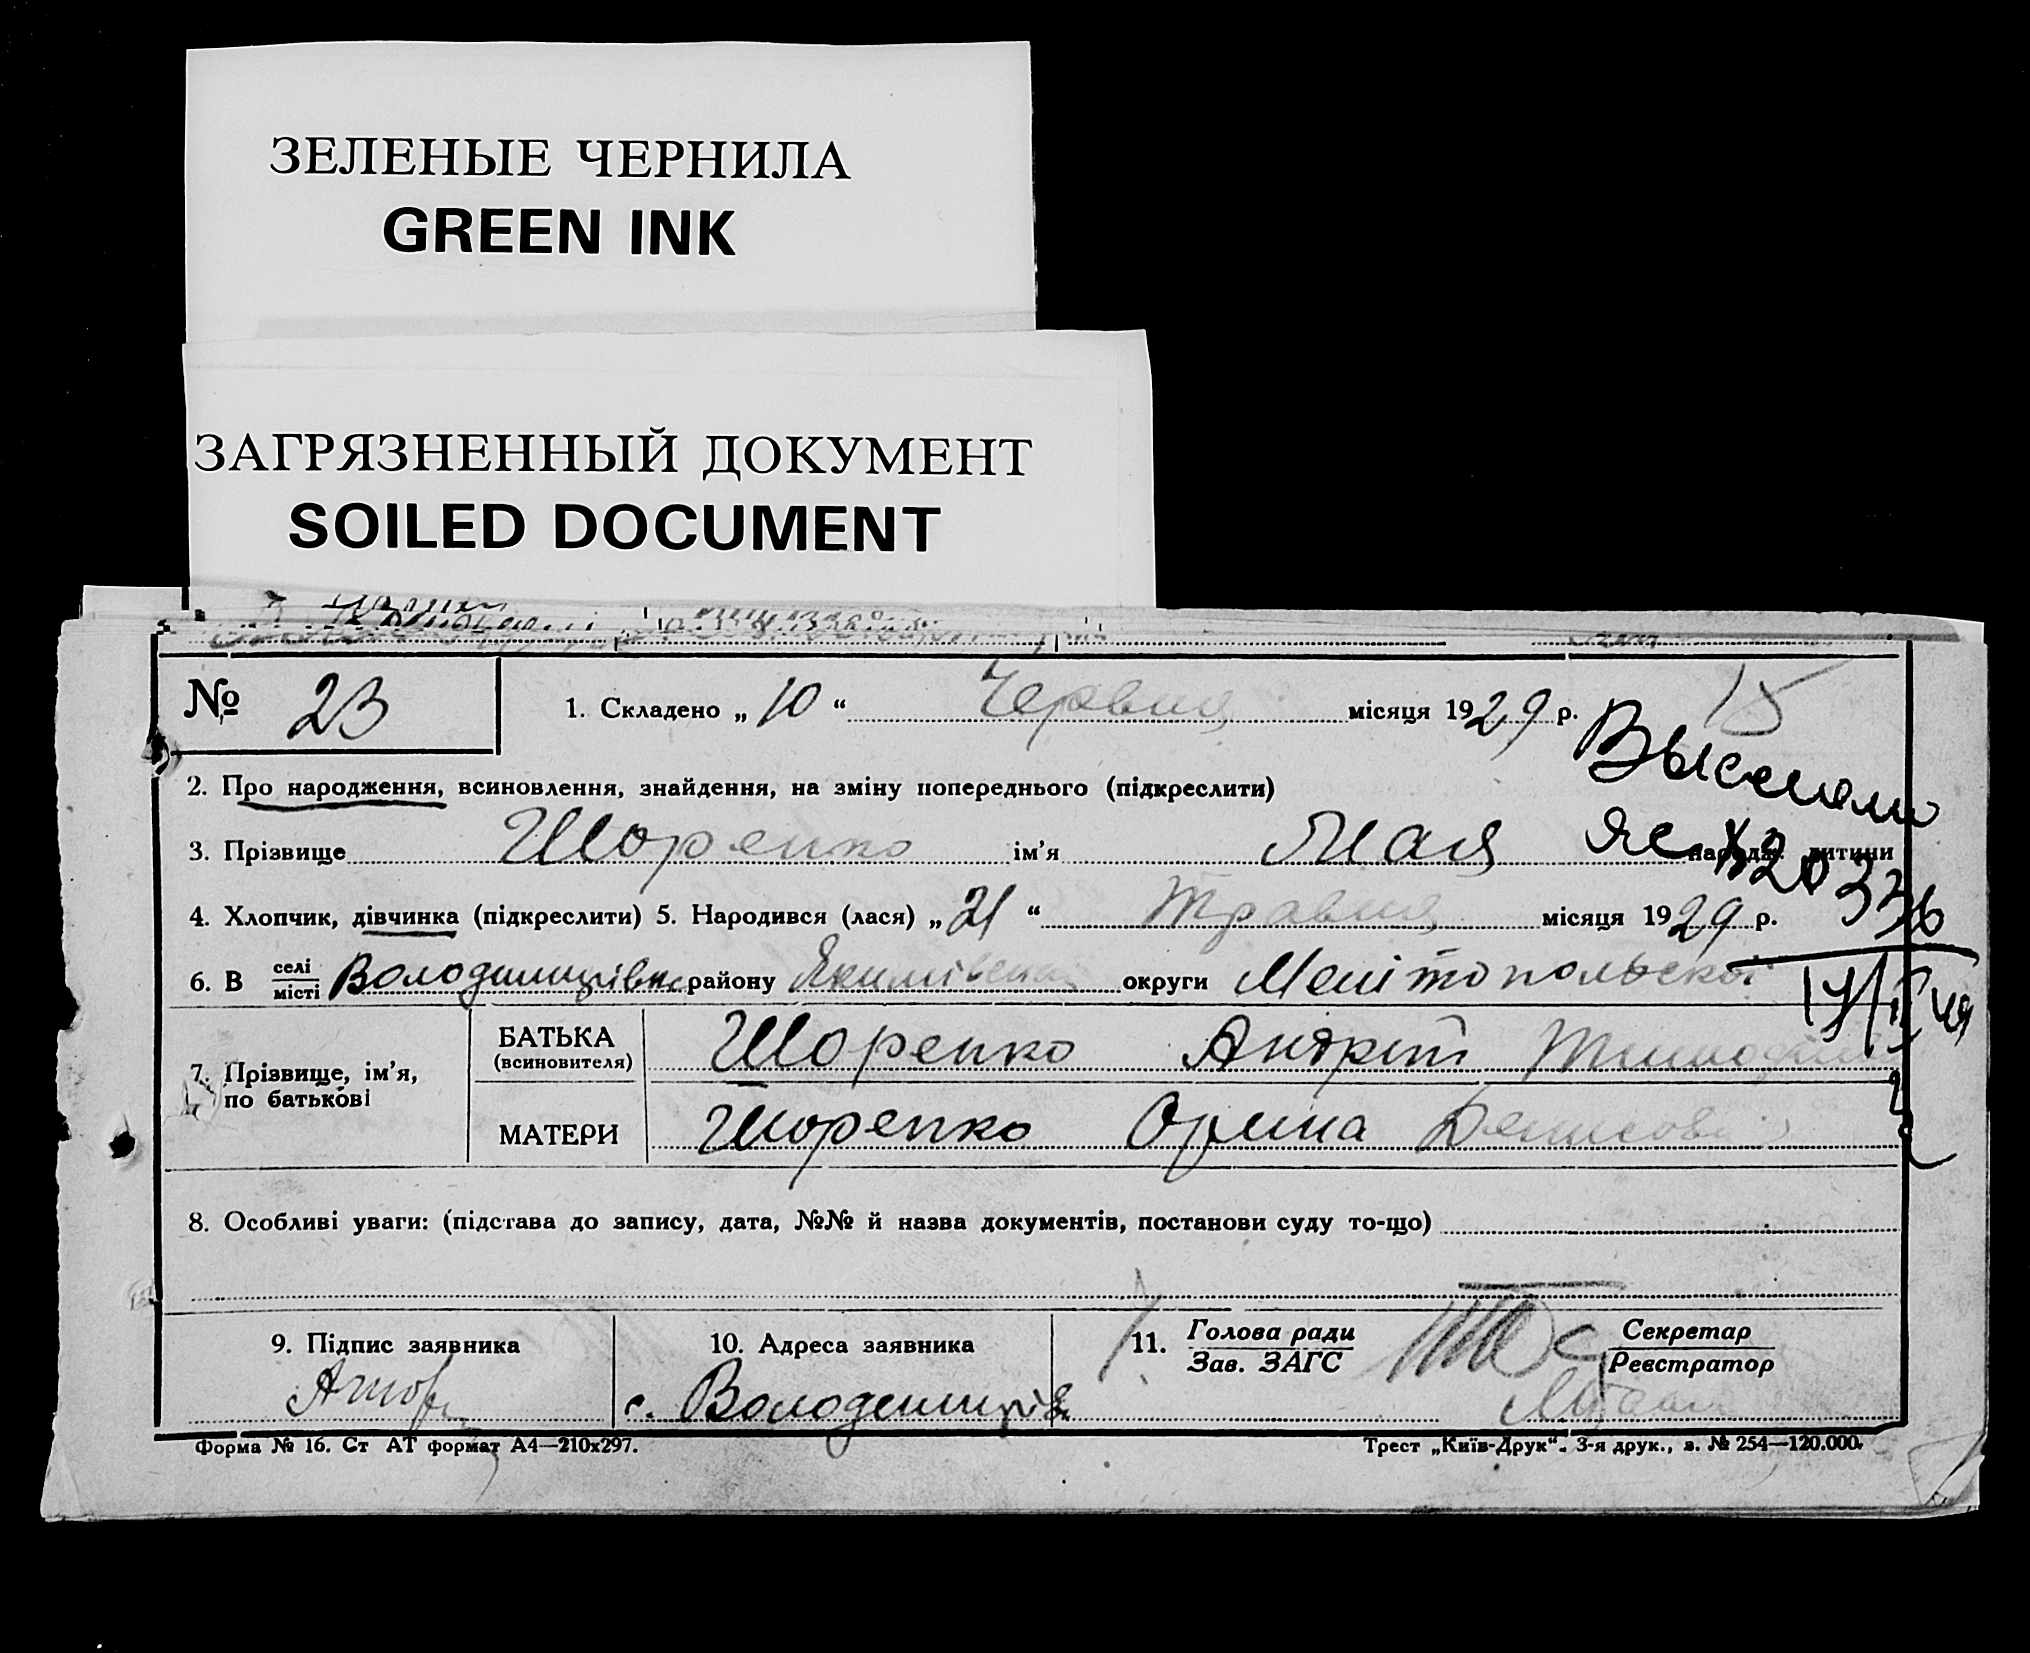 ЗЕЛЕНЫЕ ЧЕРНИЛА
GREEN INK
ЗАГРЯЗНЕННЫЙ ДОКУМЕНТ
SOILED DOCUMENT
№ 23
1. Складено „ 10 “ Червня місяця 1929 р. 15
2. Про народження, всиновлення, знайдення, на зміну попереднього (підкреслити)
3. Прізвище Шоренко ім’я Мая дитини
4. Хлопчик, дівчинка (підкреслити) 5. Народився (лася) „ 21 “ Травня місяця 1929 р.
6. В селі/місті району Якимівськ округи Мелітопольської
7. Прізвище, ім’я, по батькові
БАТЬКА (всиновителя) Шоренко Андрій
МАТЕРИ Шоренко Орина
8. Особливі уваги: (підстава до запису, дата, №№ й назва документів, постанови суду то-що)
9. Підпис заявника
10. Адреса заявника
с.
11. Голова ради
Зав. ЗАГС
Секретар
Реєстратор
Форма № 16. Ст АТ формат А4—210х297.
Трест „Київ-Друк“. 3-я друк., з. № 254—120.000.